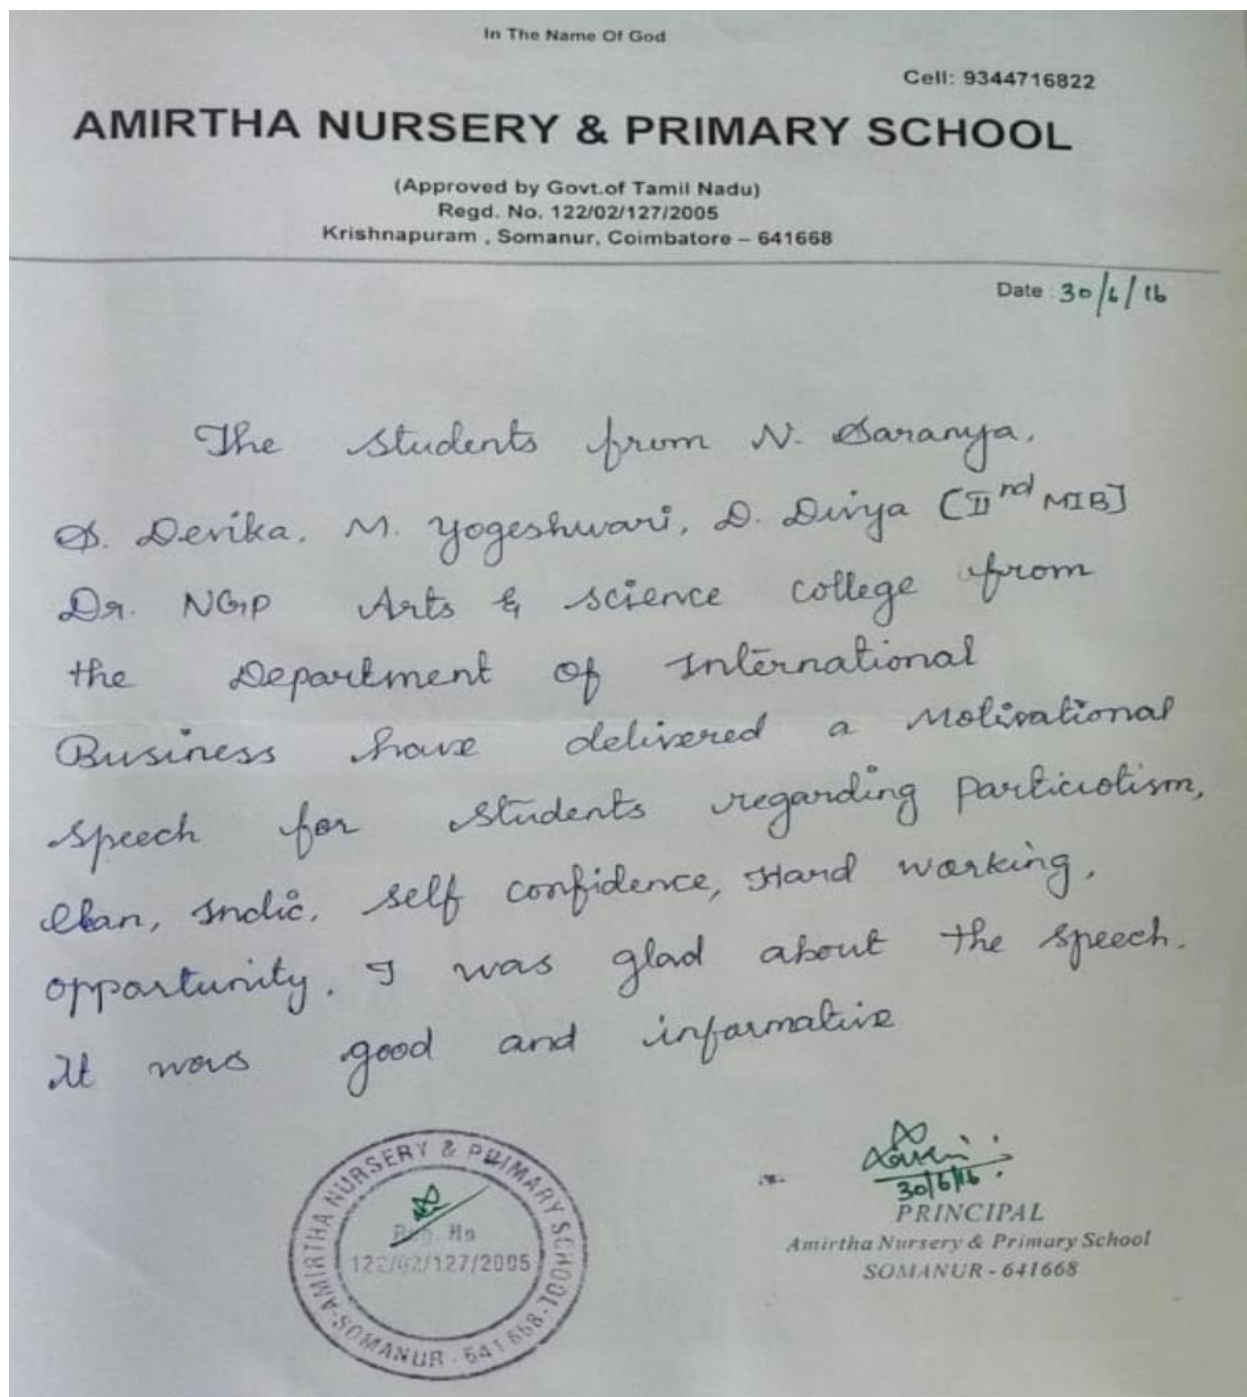 In The Name Of God
Cell: 9344716822
AMIRTHA NURSERY & PRIMARY SCHOOL
(Approved by Govt.of Tamil Nadu)
Regd. No. 122/02/127/2005
Krishnapuram , Somanur, Coimbatore – 641668
Date : 30/6/16
The students from N. Saranya,
S. Devika, M. Yogeshwari, D. Divya [IInd MIB]
Dr. NGP Arts & science college from
the Department of International
Business have delivered a Motivational
speech for students regarding Particiotism,
Clan, Indic, self confidence, Hard working,
opportunity. I was glad about the speech.
It was good and informative
AMIRTHA NURSERY & PRIMARY SCHOOL
Reg. No
122/02/127/2005
SOMANUR - 641 668
30/6/16
PRINCIPAL
Amirtha Nursery & Primary School
SOMANUR - 641668